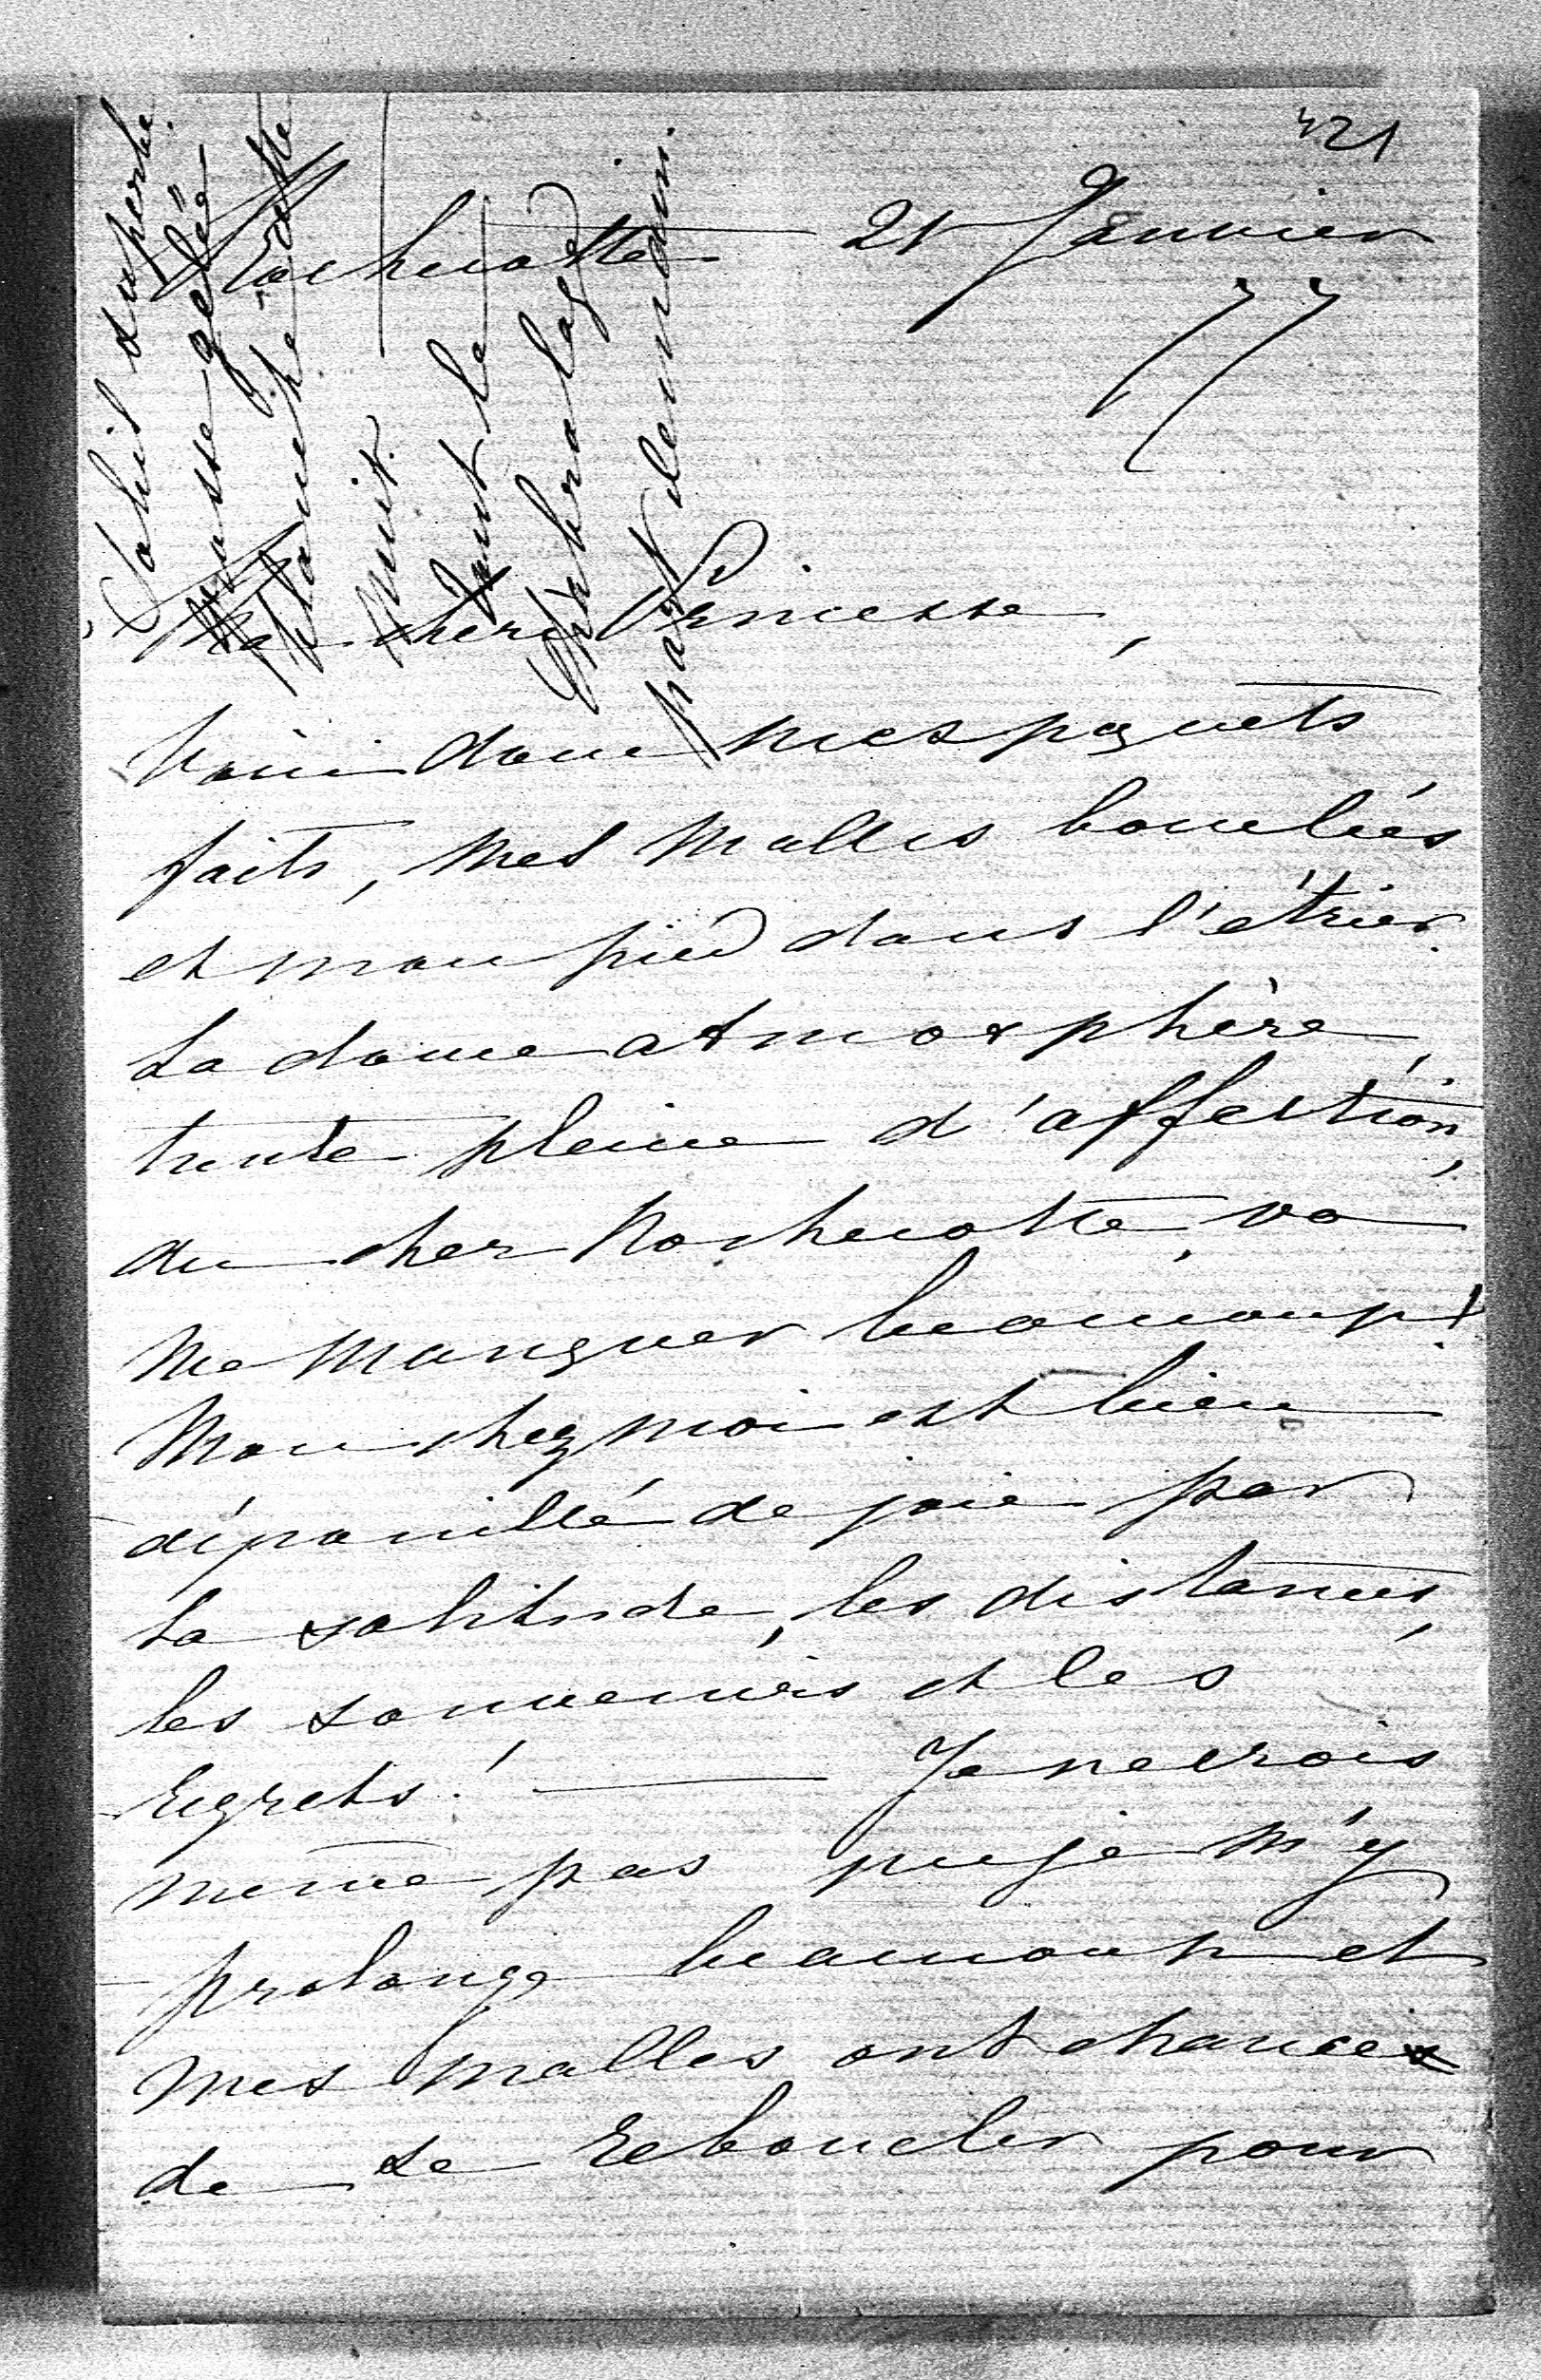 421
Rochecotte — 21 Janvier
77
Ma chère Princesse,
Voici donc mes paquets
faits, mes malles bouclées
et mon pied dans l'étrier.
La douce atmosphère,
toute pleine d'affection,
du cher Rochecotte, va
me manquer beaucoup!
Mon chez moi est bien
dépouillé de joie par
la solitude, les distances,
les souvenirs et les
regrets! — Je ne crois
même pas que je m'y
prolonge beaucoup et
mes malles ont chance
de se reboucler pour
Soleil superbe.
gelée
blanche cette
nuit.
Tout le
part demain.